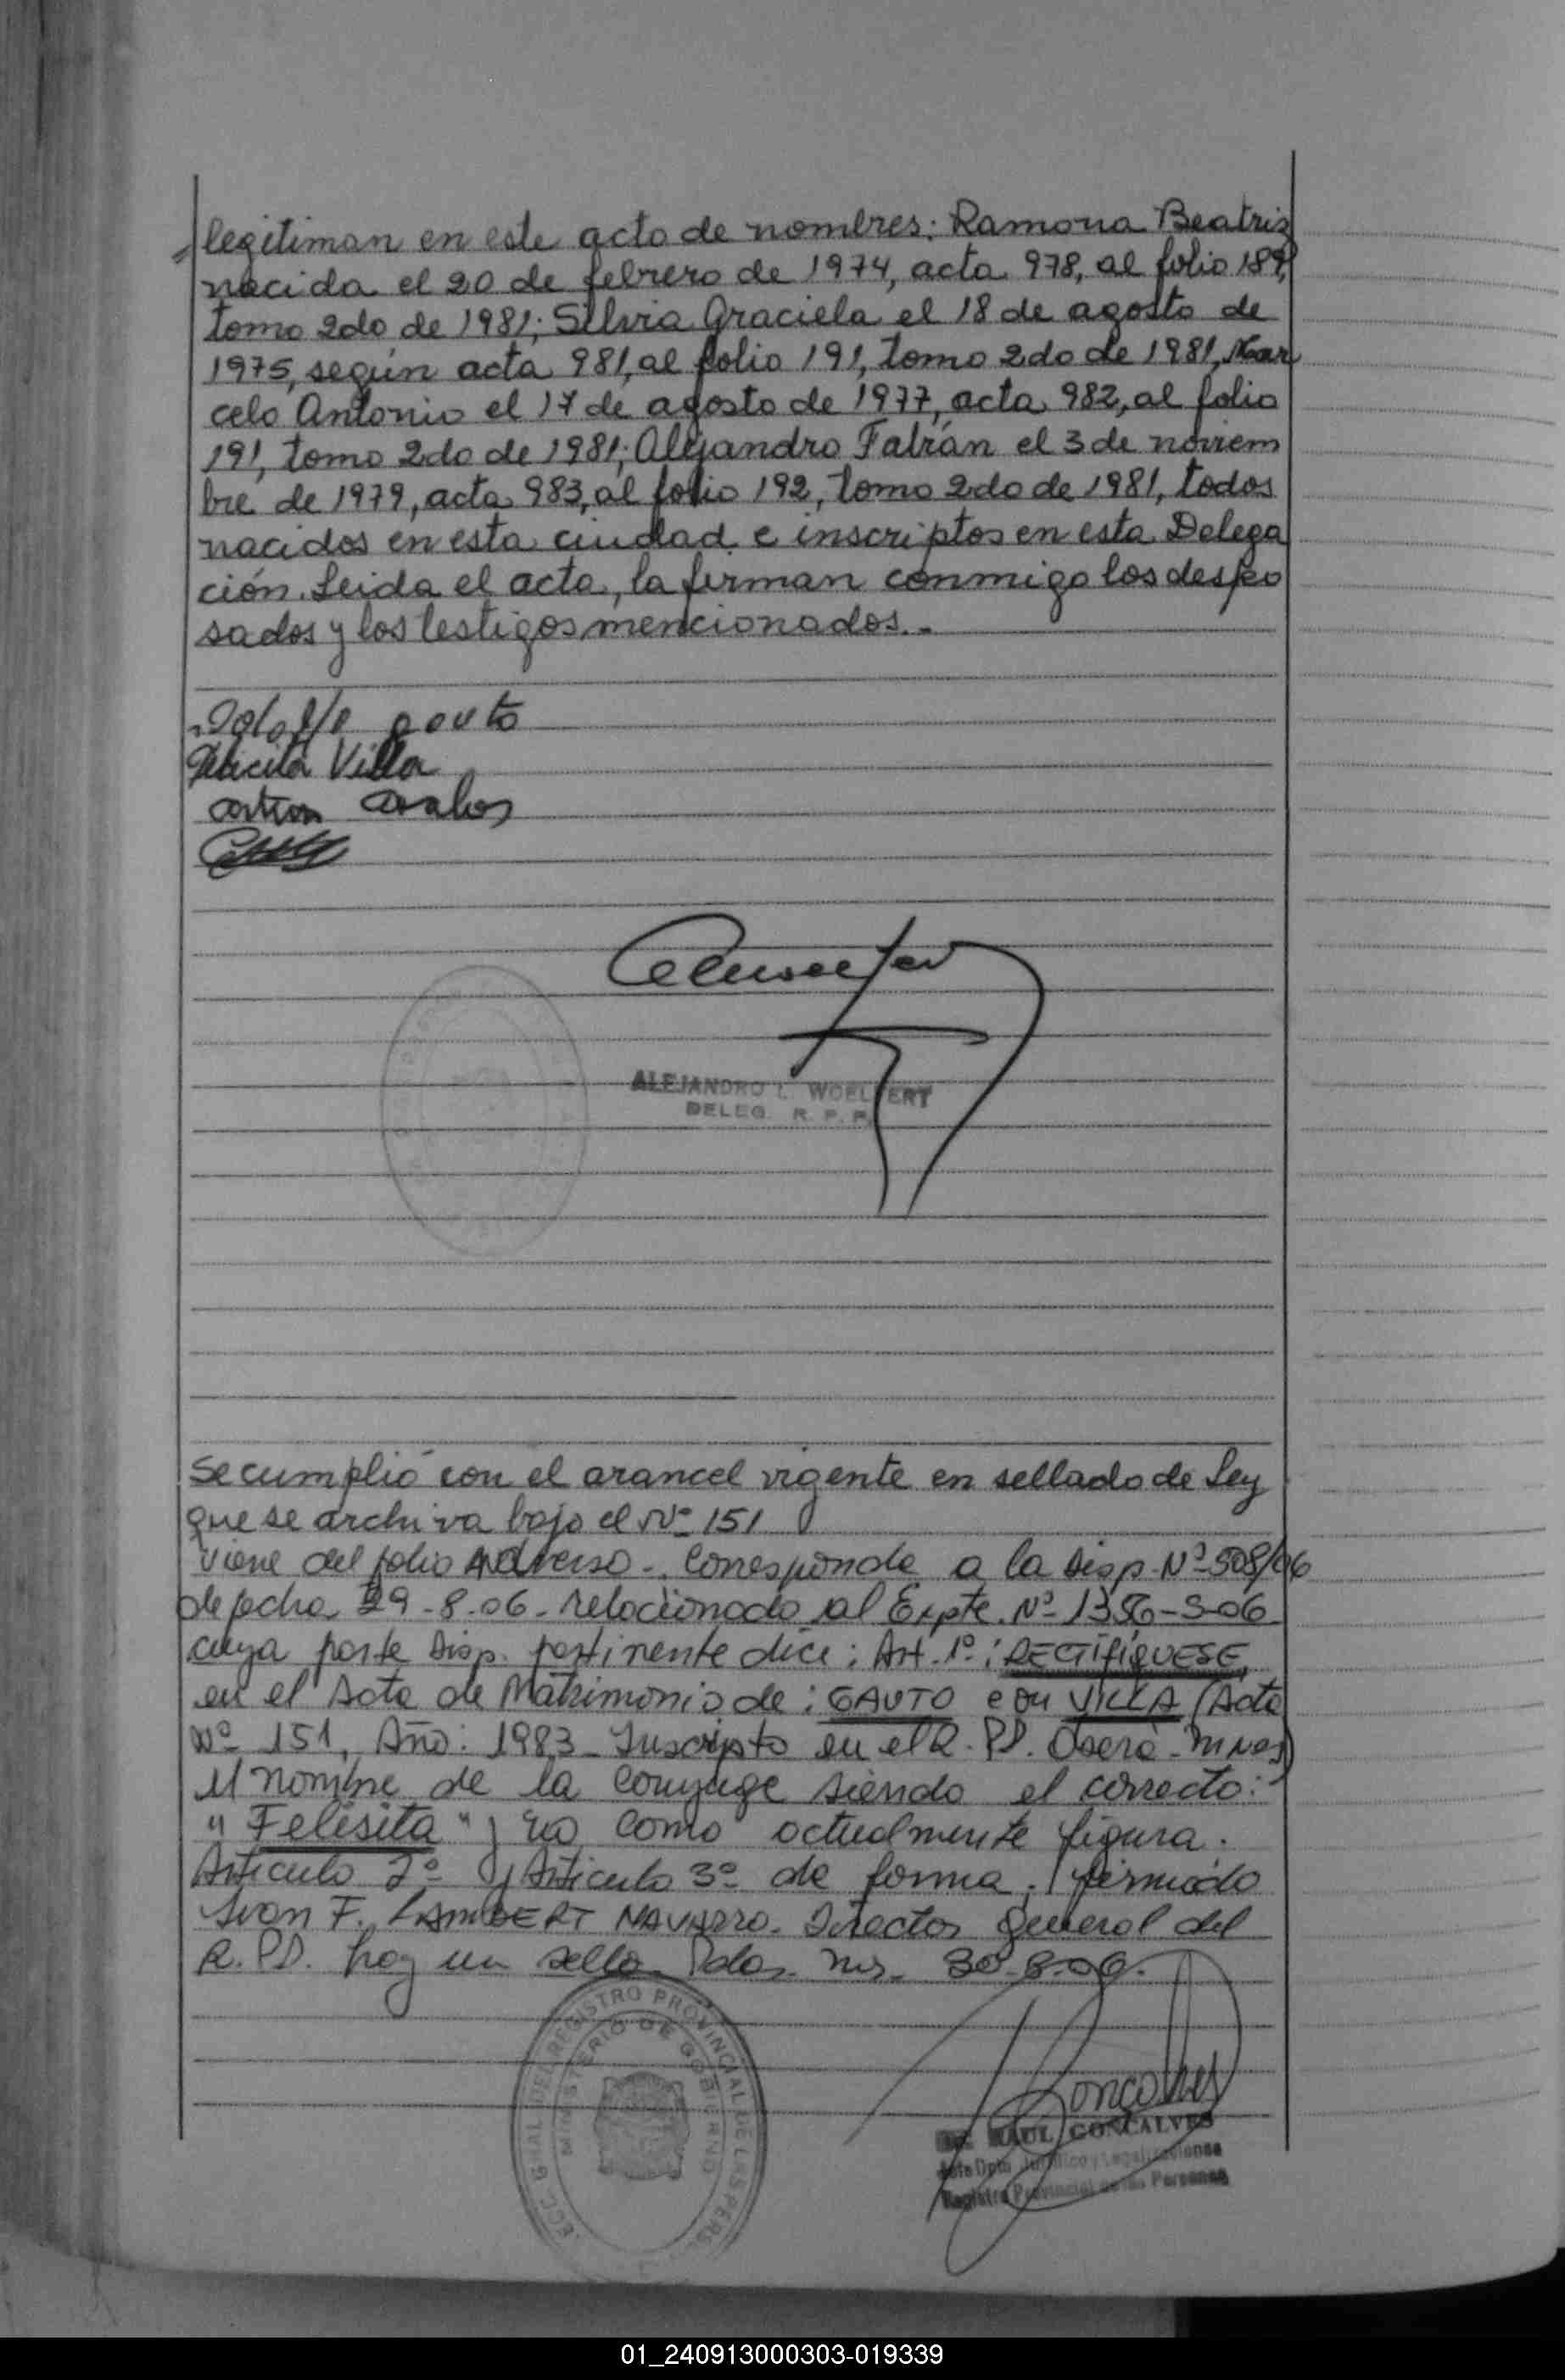 legitiman en este acto de nombres: Ramona Beatriz
nacida el 20 de febrero de 1974, acta 978, al folio 189,
tomo 2do de 1981; Silvia Graciela el 18 de agosto de
1975, según acta 981, al folio 191, tomo 2do de 1981, Mar
celo Antonio el 17 de agosto de 1977, acta 982, al folio
191, tomo 2do de 1981; Alejandro Fabián el 3 de noviem
bre de 1979, acta 983, al folio 192, tomo 2do de 1981, todos
nacidos en esta ciudad e inscriptos en esta Delega
ción. Leida el acta, la firman conmigo los despo
sados y los testigos mencionados.-
gauto
Villa
ALEJANDRO L. WOELFERT
DELEG. R. P. P.
Se cumplió con el arancel vigente en sellado de Ley
que se archiva bajo el Nº 151
Viene del folio Anverso.- Corresponde a la Disp. Nº 508/06
de fecha 29-8-06- relacionado al Expte. Nº 1356-S-06
cuya parte Disp. pertinente dice: Art. 1º: RECTIFIQUESE,
en el Acta de Matrimonio de: GAUTO con VILLA (Acta
Nº 151, Año: 1983- Inscripto en el R. PP. Oberá-Mnes)
el nombre de la conyuge siendo el correcto:
"Felisita" y no como actualmente figura.
Articulo 2º y Articulo 3º de forma. firmado
Ivan F. LAMBERT NAVARRO. Director General del
R. PP. hay un sello. Pdas. Ms. 30-8-06.
DIRECC. GRAL. DEL REGISTRO PROVINCIAL DE LAS PERS.
MINISTERIO DE GOBIERNO
Goncalves
RAUL GONCALVES
Jefe Dpto. Jurídico y Legalizaciones
Registro Provincial de las Personas
01_240913000303-019339